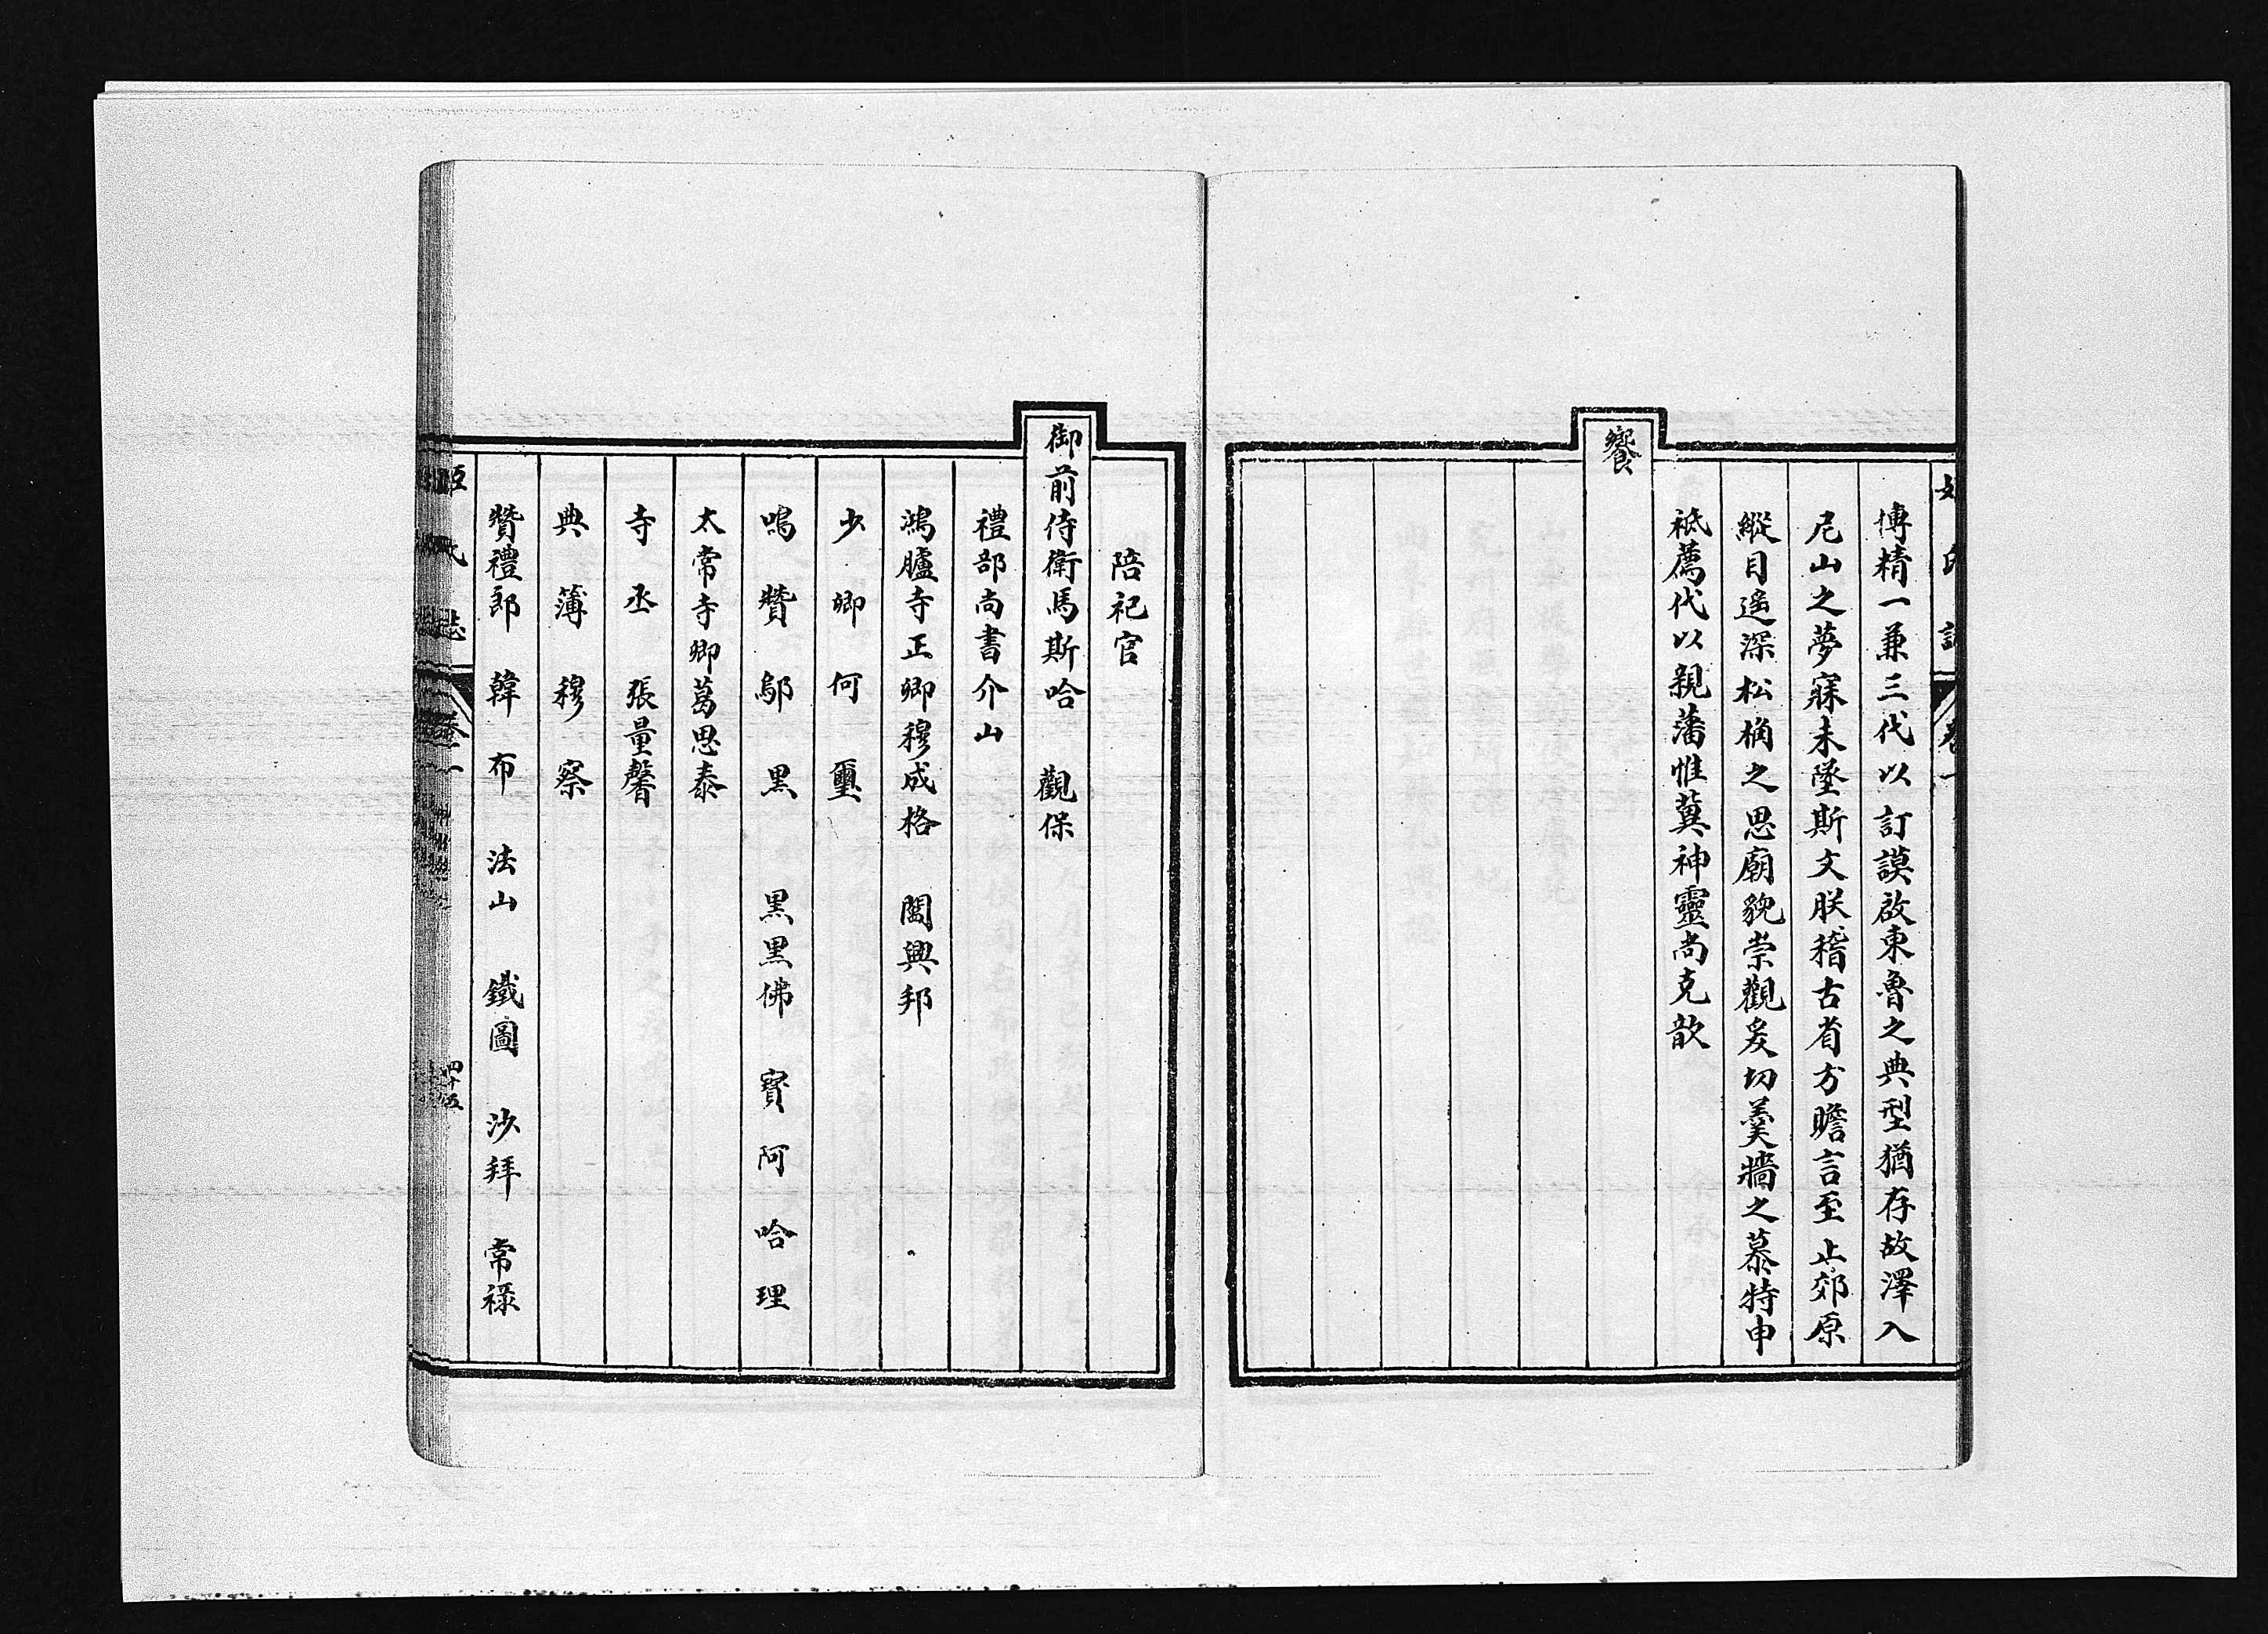 姬氏誌 卷一
傳精一兼三代以訂謨啟東魯之典型猶存故澤入
尼山之夢寐未墜斯文朕稽古省方瞻言至止郊原
縱目遥深松桷之思廟貌崇觀爰切羹牆之慕特申
祗薦代以親藩惟冀神靈尚克歆
饗
陪祀官
御前侍衛馬斯哈 觀保
禮部尚書介山
鴻臚寺正卿穆成格 閻興邦
少卿何璽
鳴贊鄔黑 黑黑佛 寳阿哈理
太常寺卿葛思泰
寺丞張量馨
典薄穆察
贊禮郎 韓布 法山 鐵圖 沙拜 常禄
氏誌 卷一 四十五